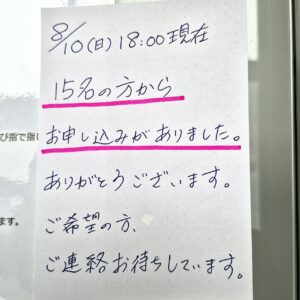 8/10(日)18:00現在
15名の方から
お申し込みがありました。
ありがとうございます。
ご希望の方、
ご連絡お待ちしています。
び指で指
ます。